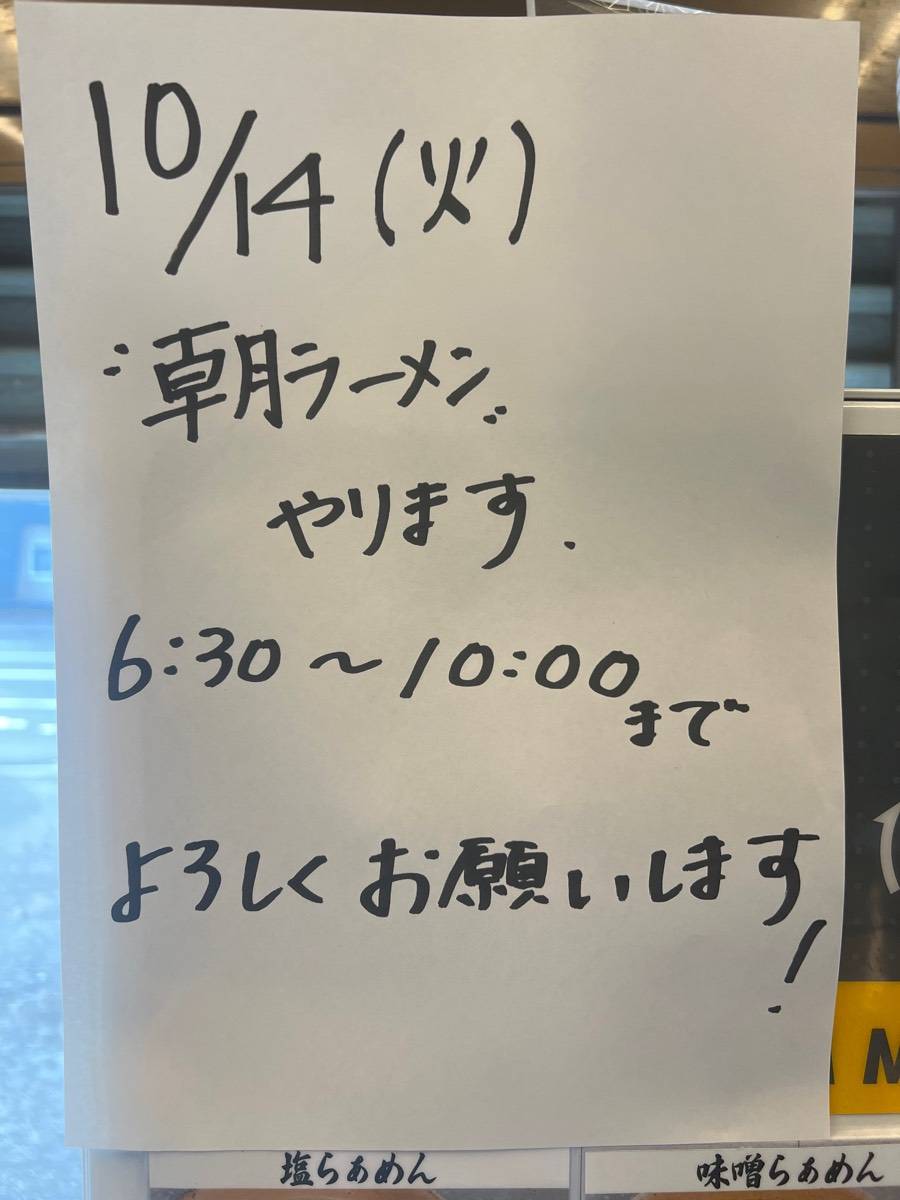 10/14(火)
〝朝ラーメン〟
やります.
6:30〜10:00
まで
よろしくお願いします!
塩らぁめん
味噌らぁめん